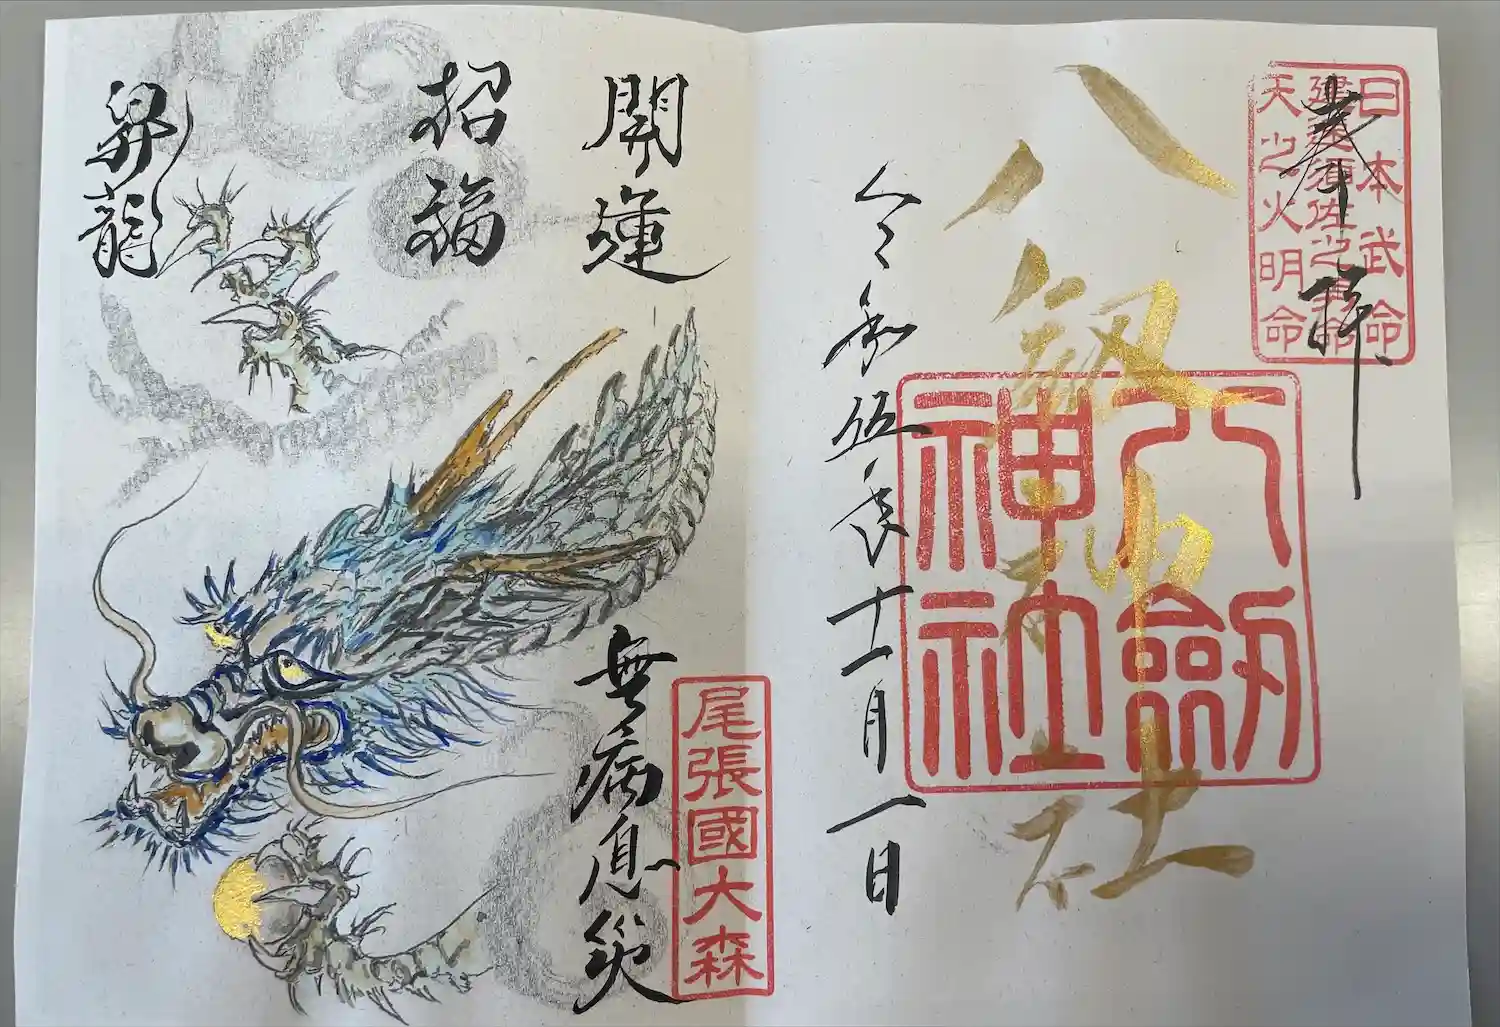 日本武命
建速須佐之男命
天之火明命
奉拝
八剱神社
八劔神社
令和伍年十一月一日
開運
招福
昇龍
無病息災
尾張國大森